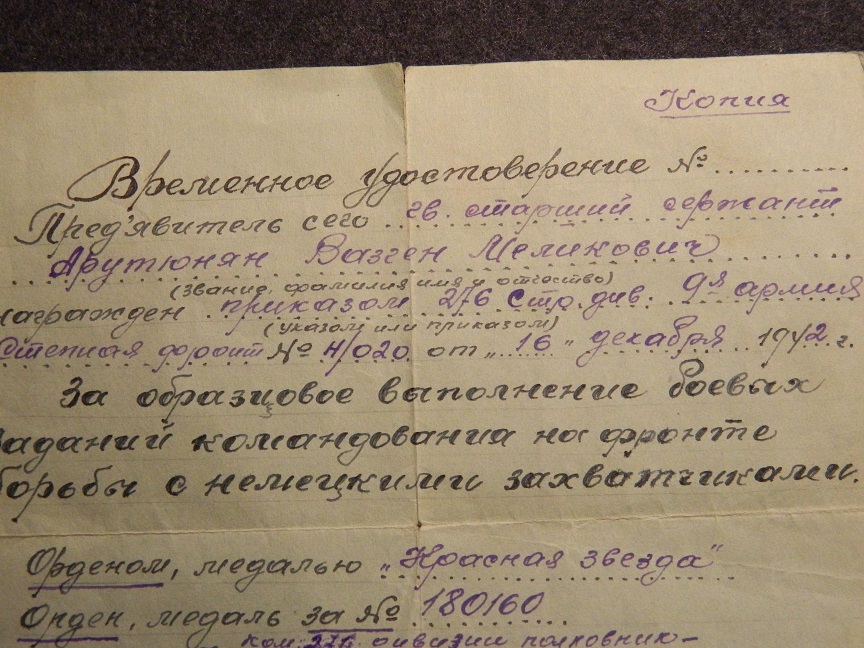 Копия
Временное удостоверение №..........
Пред'явитель сего гв. старший сержант
Арутюнян Вазген Меликович
(звание, фамилия имя и отчество)
награжден приказом 276 Стр. див. 9я армия
(указом или приказом)
Степная фронт № н/020 от "16" декабря 1942 г.
За образцовое выполнение боевых
заданий командования на фронте
борьбы с немецкими захватчиками.
Орденом, медалью „Красная звезда"
Орден, медаль за № 180160
ком. 276 дивизии полковник-